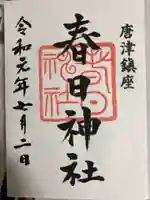 唐津鎮座
春日神社
令和元年七月二日